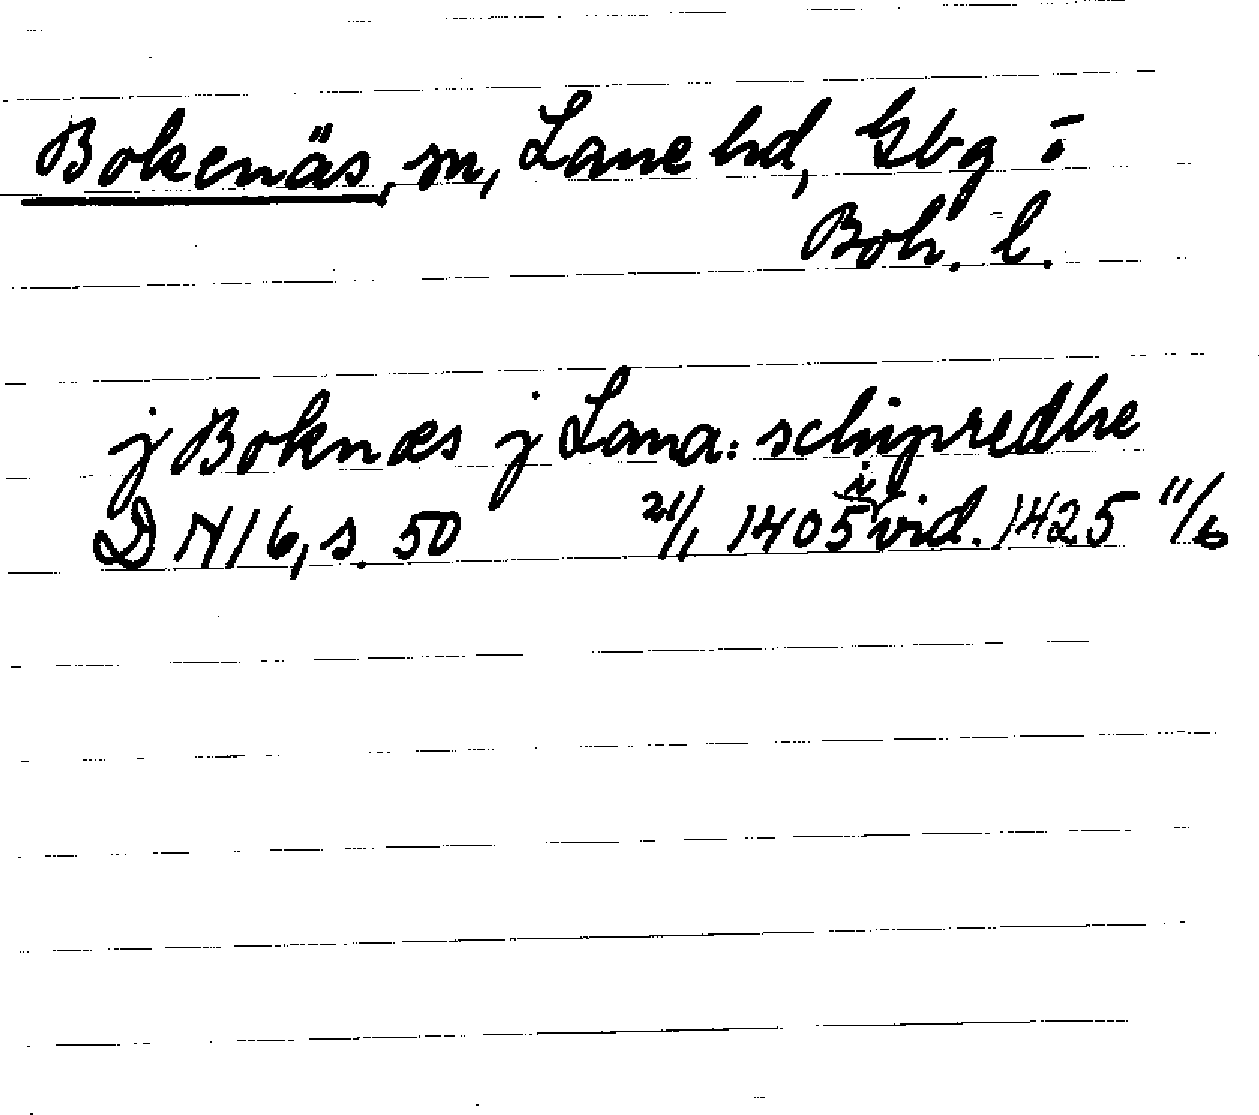 Bokenäs, sn, Lane hd, Gbg o
Boh. l.
j Boknæs j Lana: schipredhe
DN 16, s. 50 21/1 1405 i vid. 1425 11/6